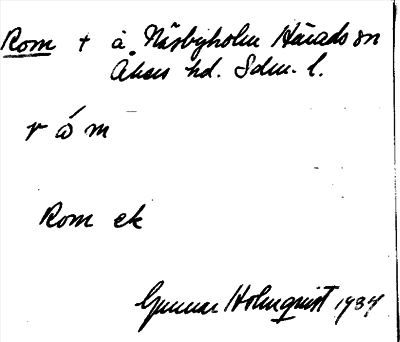 Rom + å Näsbyholm Härads sn
Åkers hd. Sdm. l.
r ó m
Rom ek
Gunnar Holmquist 1934